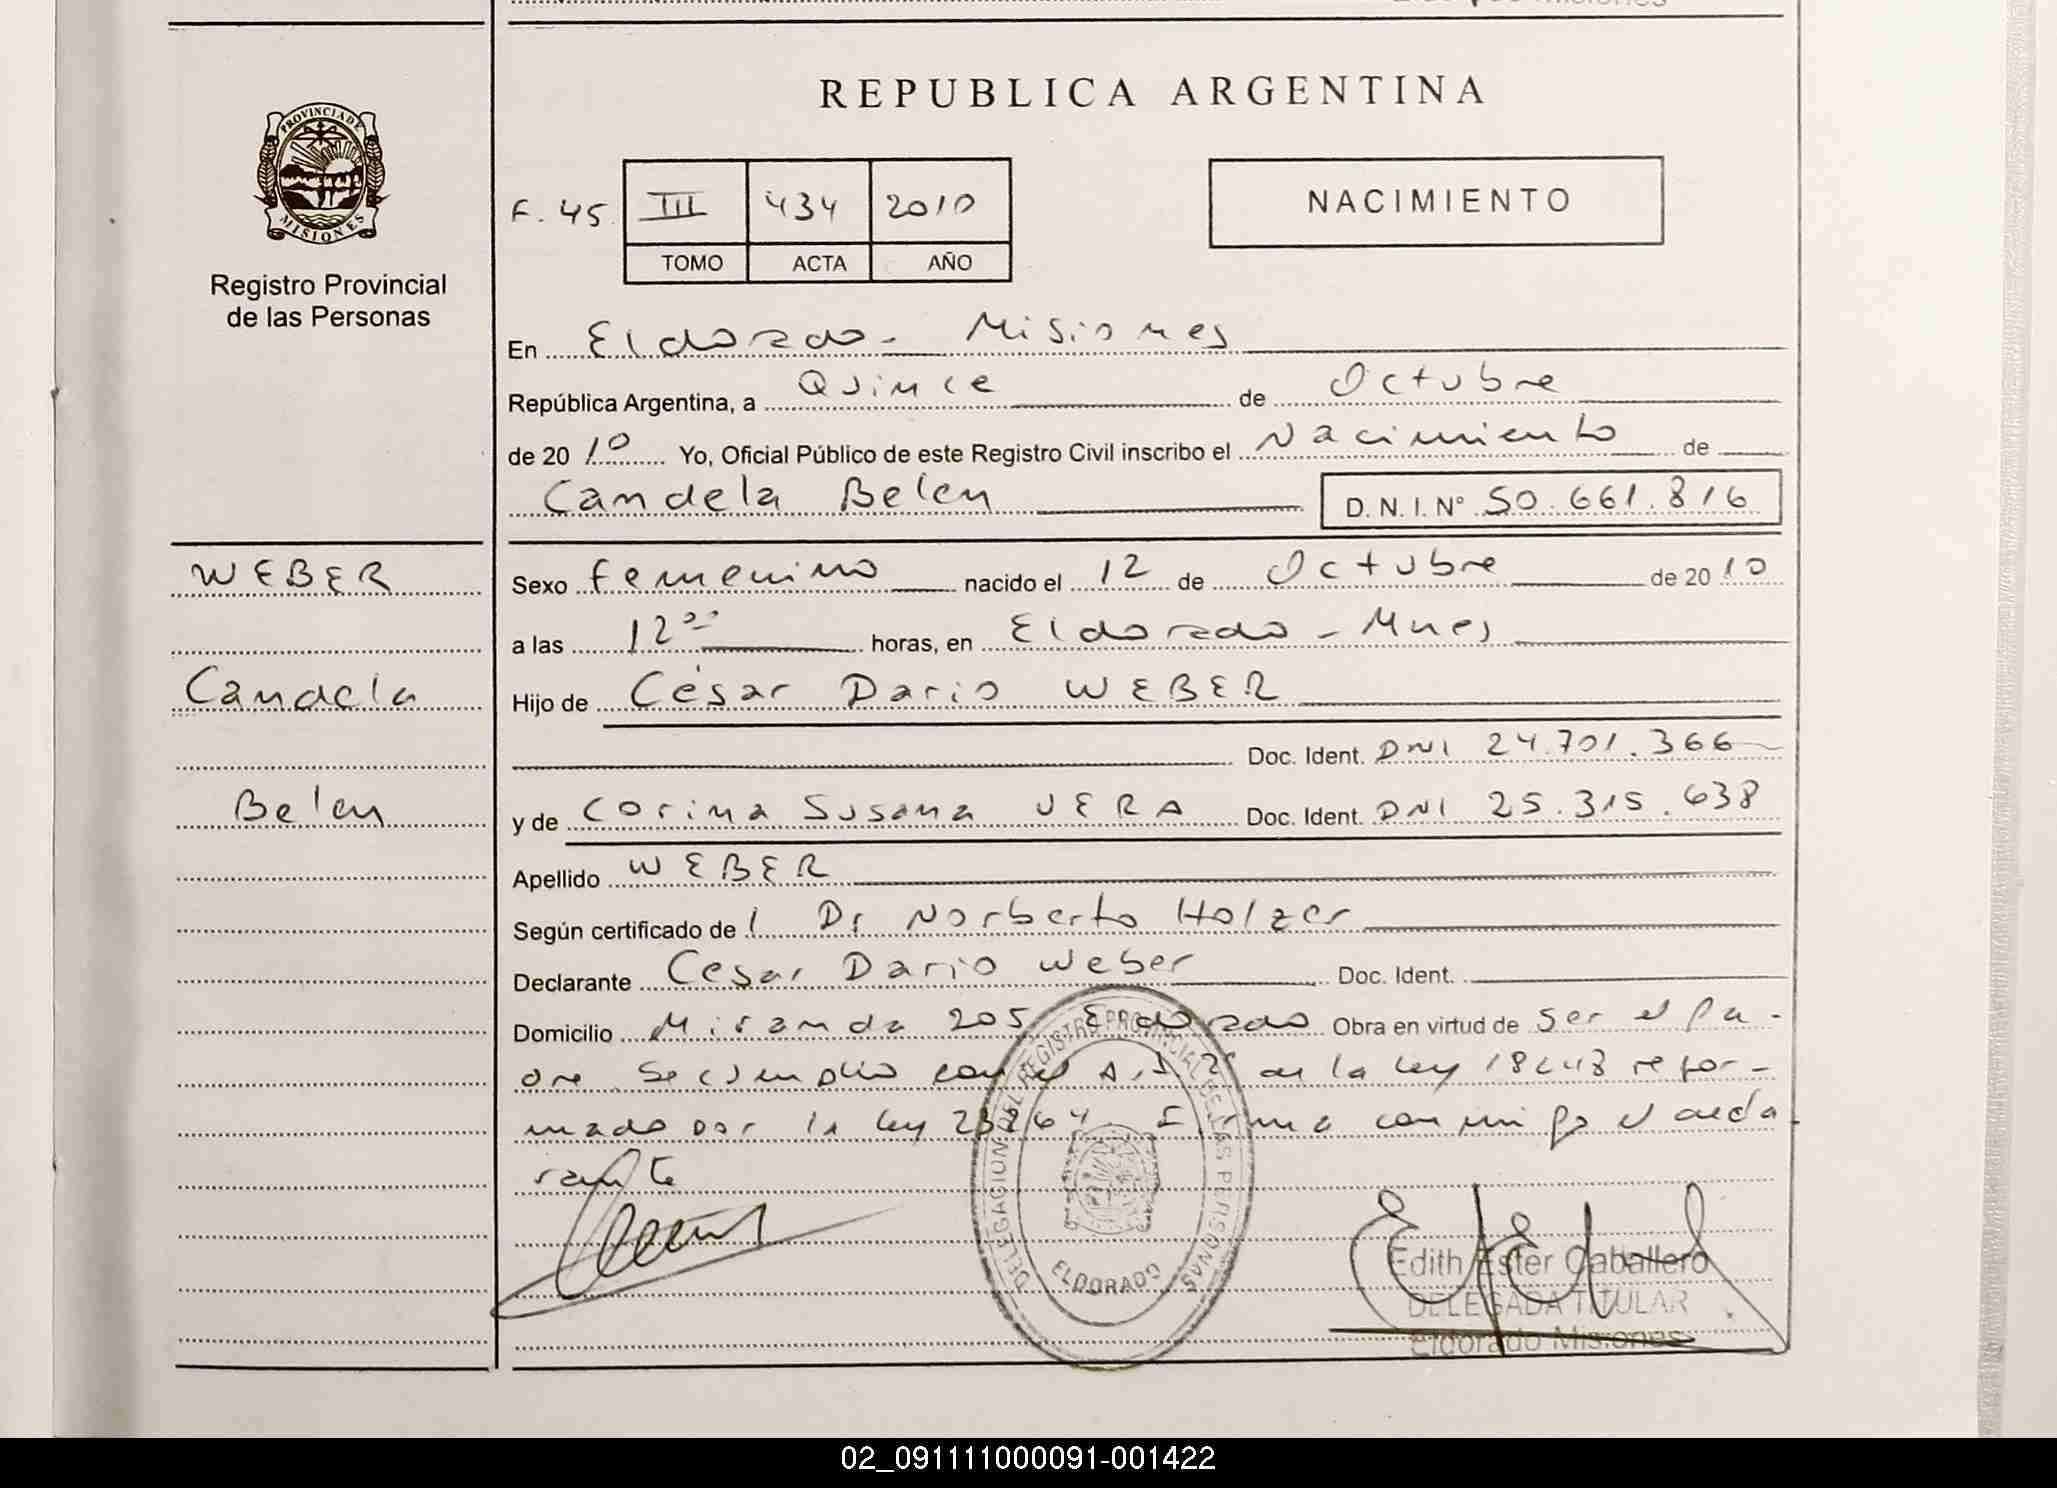 REPUBLICA ARGENTINA
PROVINCIA DE MISIONES
Registro Provincial
de las Personas
F. 45 III 434 2010
TOMO ACTA AÑO
NACIMIENTO
En Eldorado - Misiones
República Argentina, a Quince de Octubre
de 2010 Yo, Oficial Público de este Registro Civil inscribo el Nacimiento de
Candela Belen D.N.I. Nº 50.661.816
WEBER
Candela
Belen
Sexo femenino nacido el 12 de Octubre de 2010
a las 12 horas, en Eldorado - Mnes
Hijo de César Dario WEBER
Doc. Ident. DNI 24.701.366
y de Corina Susana VERA Doc. Ident. DNI 25.315.638
Apellido WEBER
Según certificado de l Dr Norberto Holzer
Declarante Cesar Dario Weber Doc. Ident.
Domicilio Miranda 205 Eldorado Obra en virtud de ser el pa-
dre. Se cumplio con el de la ley 18248 refor-
mado por la ley 23264 Firma conmigo el decla
rante
DELEGACION DEL REGISTRO PROVINCIAL DE LAS PERSONAS
ELDORADO
Edith Ester Caballero
DELEGADA TITULAR
Eldorado Misiones
02_091111000091-001422